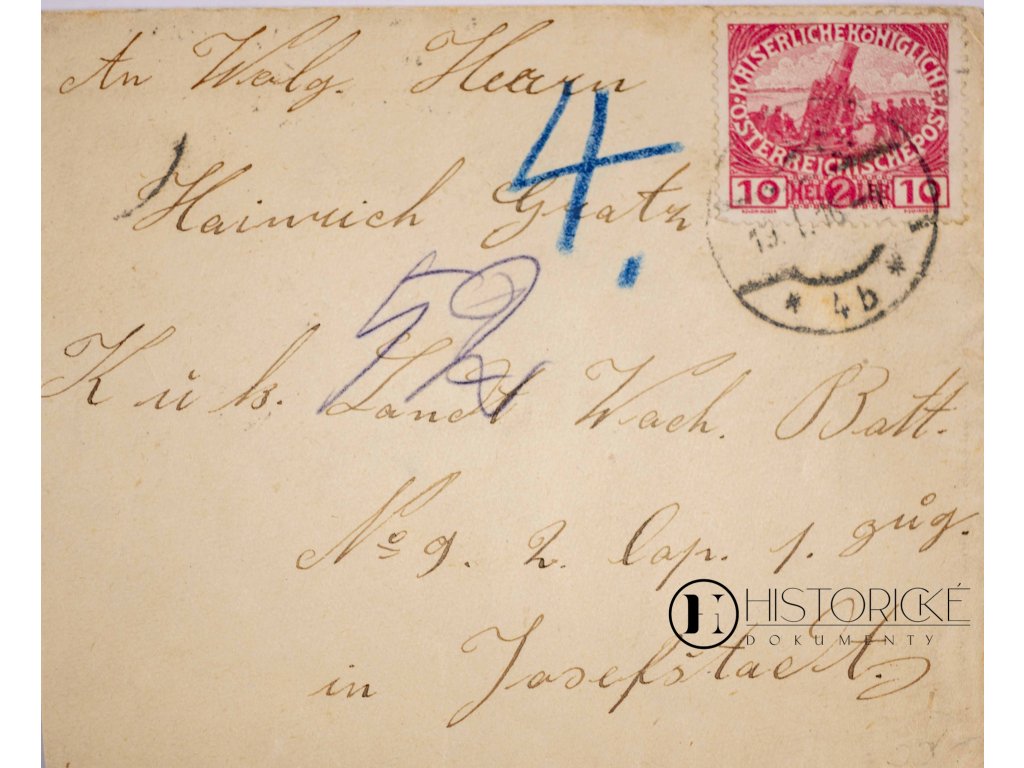 An Wolg. Herrn
Heinrich Gratz
4.
52
K u k. Landt Wach. Batt.
No 9. 2. Cop. 1. Zug.
in Josefstadt.
KAISERLICHEKÖNIGLICHE
ÖSTERREICHISCHEPOST
10 HELLER 10
2
19. I. 16
* 4b *
HISTORICKÉ
DOKUMENTY